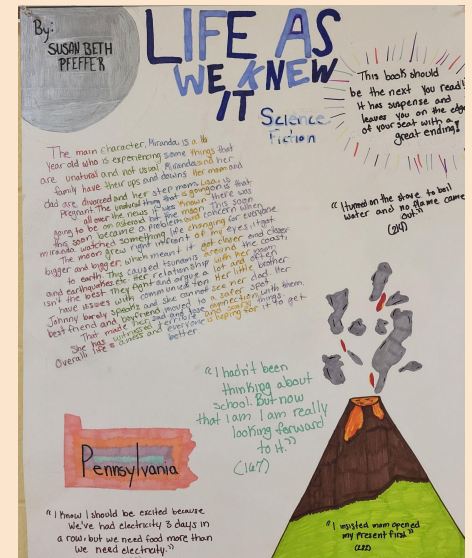 By:
SUSAN BETH
PFEFFER
LIFE AS
WE KNEW
IT
Science
Fiction
This book should
be the next you read!
It has suspense and
leaves you on the edge
of your seat with a
great ending!
The main character, Miranda, is a 16
year old who is experiencing some things that
are unatural and not usual. Miranda and her
family have their ups and downs. Her mom and
dad are divorced and her step mom Lisa is
Pregnant. The unatural thing that is going on is that
all over the news it was known there was
going to be an asteroid hit the moon. This soon
this soon became a problem and concern when
miranda watched something life changing for everyone
The moon grew right infront of my eyes, it got
bigger and bigger, which meant it got closer and closer
to earth. This caused tsunamis around the coast,
and earthquakes etc. Her relationship with her mom
isnt the best they fight and argue a lot and often
have issues with communication. Her little brother
Johnny barely speaks and she can not see her dad. Her
best friend and boyfriend moved to a safer spot.
That made her sad and lost connection with them.
She has witnessed terrible and scary things
Overall life is and everyone is hoping for it to get
better.
"I turned on the stove to boil
water and no flame came
out."
(214)
"I hadn't been
thinking about
school. But now
that I am I am really
looking forward
to it."
(167)
Pennsylvania
"I know I should be excited because
we've had electricity 3 days in
a row, but we need food more than
we need electricity."
"I insisted mom opened
my present first"